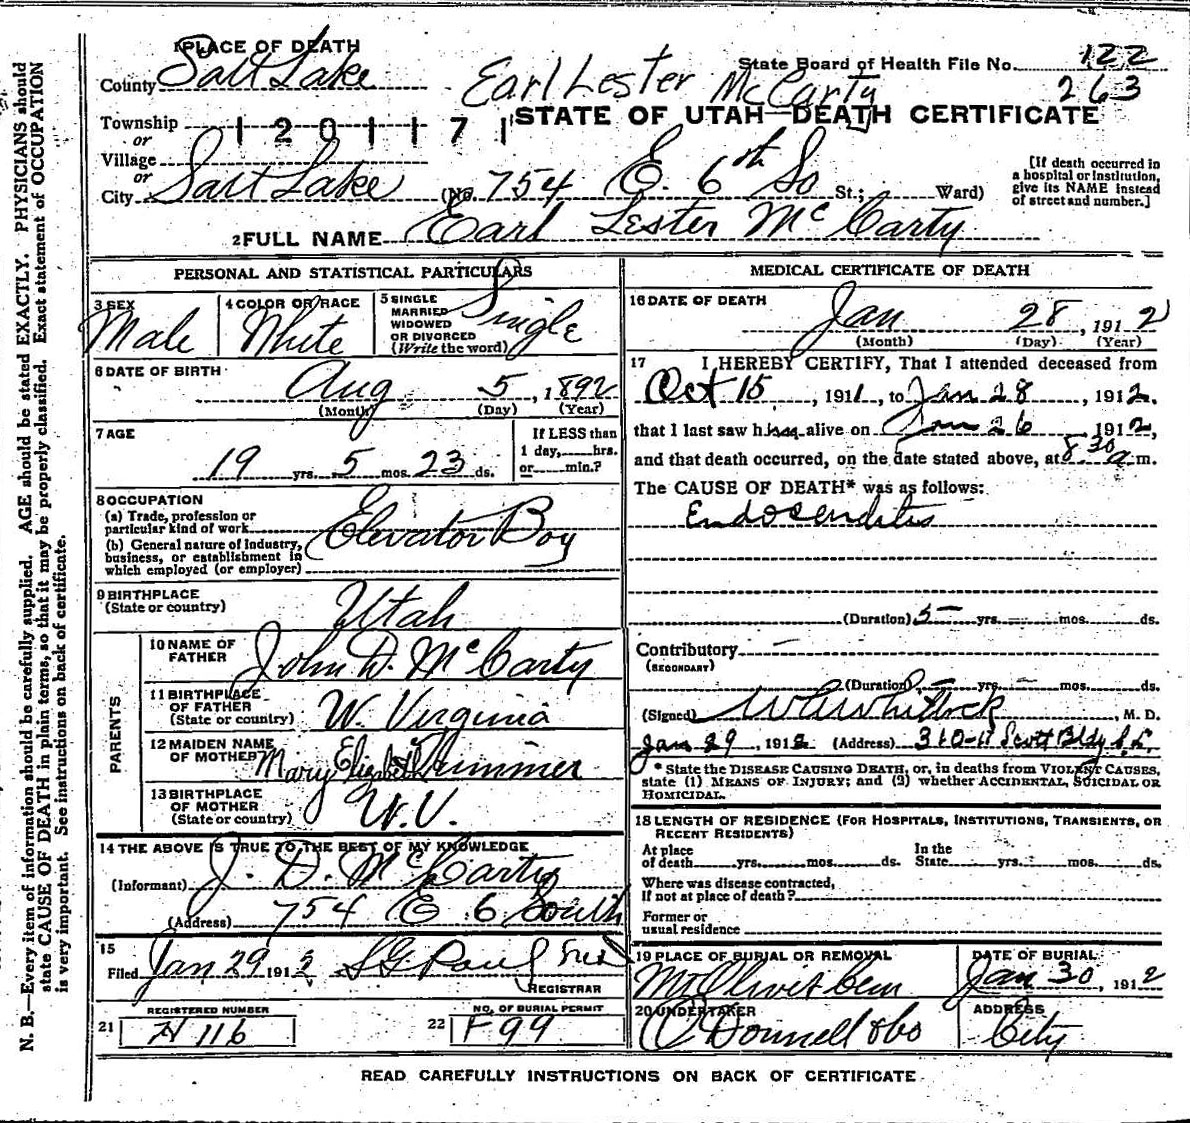 1 PLACE OF DEATH
County Salt Lake
Earl Lester McCarty
State Board of Health File No. 122
263
Township
1201171
STATE OF UTAH—DEATH CERTIFICATE
or
Village
or
City Salt Lake (No. 754 E. 6th So St.; Ward)
[If death occurred in
a hospital or institution,
give its NAME instead
of street and number.]
2 FULL NAME Earl Lester McCarty
PERSONAL AND STATISTICAL PARTICULARS
3 SEX
Male
4 COLOR OR RACE
White
5 SINGLE
MARRIED
WIDOWED
OR DIVORCED
(Write the word)
Single
6 DATE OF BIRTH
Aug 5, 1892
(Month) (Day) (Year)
7 AGE
19 yrs. 5 mos. 23 ds.
If LESS than
1 day, hrs.
or min.?
8 OCCUPATION
(a) Trade, profession or
particular kind of work
Elevator Boy
(b) General nature of industry,
business, or establishment in
which employed (or employer)
9 BIRTHPLACE
(State or country)
Utah
PARENTS
10 NAME OF
FATHER
John D. McCarty
11 BIRTHPLACE
OF FATHER
(State or country)
W. Virginia
12 MAIDEN NAME
OF MOTHER
Mary Elizabeth
13 BIRTHPLACE
OF MOTHER
(State or country)
W.V.
14 THE ABOVE IS TRUE TO THE BEST OF MY KNOWLEDGE
(Informant) J. D. McCarty
(Address) 754 E 6 South
15
Filed Jan 29 1912
REGISTRAR
REGISTERED NUMBER
21 116
NO. OF BURIAL PERMIT
22 F 99
MEDICAL CERTIFICATE OF DEATH
16 DATE OF DEATH
Jan 28, 1912
(Month) (Day) (Year)
17 I HEREBY CERTIFY, That I attended deceased from
Oct 15, 1911, to Jan 28, 1912.
that I last saw him alive on Jan 26 1912,
and that death occurred, on the date stated above, at 8 30 a m.
The CAUSE OF DEATH* was as follows:
Endocarditis
(Duration) 5 yrs. mos. ds.
Contributory
(SECONDARY)
(Duration) yrs. mos. ds.
(Signed) W A Whitlock, M. D.
Jan 29, 1912 (Address) 310-11 Scott Bldg S.L.
* State the DISEASE CAUSING DEATH, or, in deaths from VIOLENT CAUSES,
state (1) MEANS OF INJURY; and (2) whether ACCIDENTAL, SUICIDAL OR
HOMICIDAL.
18 LENGTH OF RESIDENCE (FOR HOSPITALS, INSTITUTIONS, TRANSIENTS, OR
RECENT RESIDENTS)
At place
of death yrs. mos. ds.
In the
State yrs. mos. ds.
Where was disease contracted,
if not at place of death?
Former or
usual residence
19 PLACE OF BURIAL OR REMOVAL
Mt Olivet Cem
DATE OF BURIAL
Jan 30, 1912
20 UNDERTAKER
O'Donnell & Co
ADDRESS
City
READ CAREFULLY INSTRUCTIONS ON BACK OF CERTIFICATE
N. B.—Every item of information should be carefully supplied. AGE should be stated EXACTLY. PHYSICIANS should
state CAUSE OF DEATH in plain terms, so that it may be properly classified. Exact statement of OCCUPATION
is very important. See instructions on back of certificate.